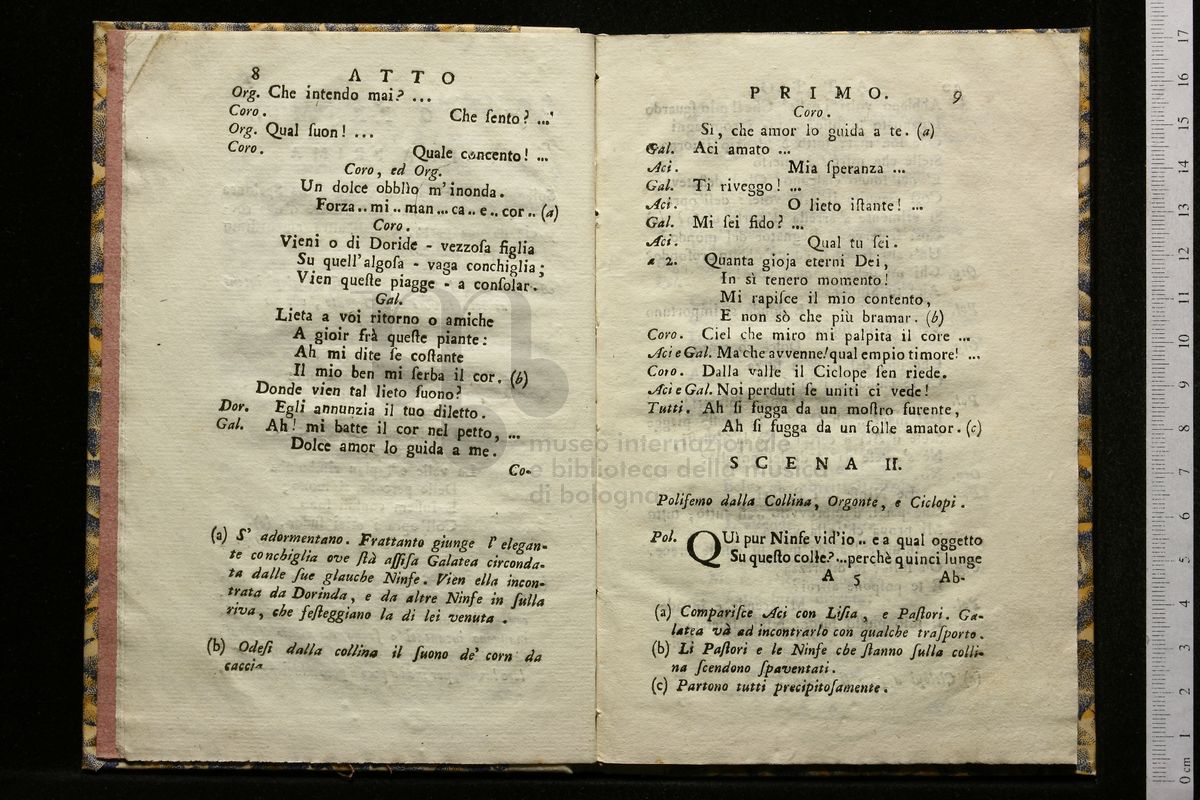 8 ATTO
Org. Che intendo mai? ...
Coro. Che ſento? ...
Org. Qual ſuon! ...
Coro. Quale concento! ...
Coro, ed Org.
Un dolce obblìo m'inonda.
Forza .. mi .. man ... ca .. e .. cor .. (a)
Coro.
Vieni o di Doride - vezzoſa figlia
Su quell'algoſa - vaga conchiglia;
Vien queſte piagge - a conſolar.
Gal.
Lieta a voi ritorno o amiche
A gioir frà queſte piante:
Ah mi dite ſe coſtante
Il mio ben mi ſerba il cor. (b)
Donde vien tal lieto ſuono?
Dor. Egli annunzia il tuo diletto.
Gal. Ah! mi batte il cor nel petto, ...
Dolce amor lo guida a me.
Co-
(a) S' adormentano. Frattanto giunge l' elegan-
te conchiglia ove ſtà aſſiſa Galatea circonda-
ta dalle ſue glauche Ninfe. Vien ella incon-
trata da Dorinda, e da altre Ninfe in ſulla
riva, che feſteggiano la di lei venuta.
(b) Odeſi dalla collina il ſuono de' corn da
caccia
PRIMO. 9
Coro.
Sì, che amor lo guida a te. (a)
Gal. Aci amato ...
Aci. Mia ſperanza ...
Gal. Ti riveggo! ...
Aci. O lieto iſtante! ...
Gal. Mi ſei fido? ...
Aci. Qual tu ſei.
a 2. Quanta gioja eterni Dei,
In sì tenero momento!
Mi rapiſce il mio contento,
E non sò che più bramar. (b)
Coro. Ciel che miro mi palpita il core ...
Aci e Gal. Ma che avvenne! qual empio timore! ...
Coro. Dalla valle il Ciclope ſen riede.
Aci e Gal. Noi perduti ſe uniti ci vede!
Tutti. Ah ſi fugga da un moſtro furente,
Ah ſi fugga da un folle amator. (c)
SCENA II.
Polifemo dalla Collina, Orgonte, e Ciclopi.
Pol. QUì pur Ninfe vid'io .. e a qual oggetto
Su queſto colle? ... perchè quinci lunge
A 5 Ab-
(a) Compariſce Aci con Liſia, e Paſtori. Ga-
latea và ad incontrarlo con qualche traſporto.
(b) Li Paſtori e le Ninfe che ſtanno ſulla colli-
na ſcendono ſpaventati.
(c) Partono tutti precipitoſamente.
museo internazionale
e biblioteca della musica
di bologna
0 cm 1 2 3 4 5 6 7 8 9 10 11 12 13 14 15 16 17